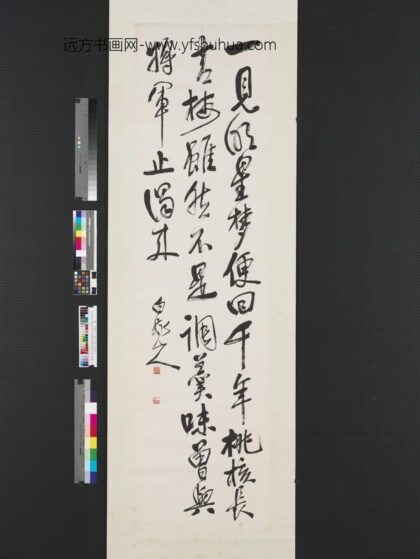 远方书画网-www.yfshuhua.com
一見明星夢便回千年桃核長
青梅雖然不是調羹味曾與
將軍止渴来